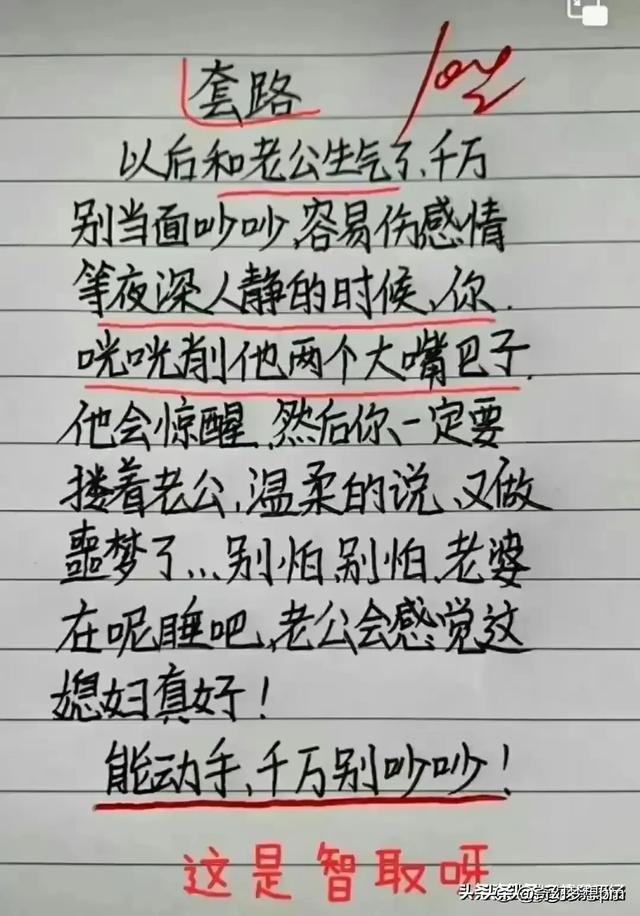 套路
以后和老公生气了、千万
别当面吵吵,容易伤感情
等夜深人静的时候、你.
咣咣削他两个大嘴巴子.
他会惊醒、然后你、一定要
搂着老公,温柔的说、又做
噩梦了...别怕,别怕、老婆
在呢睡吧,老公会感觉这
媳妇真好!
能动手、千万别吵吵!
这是智取呀